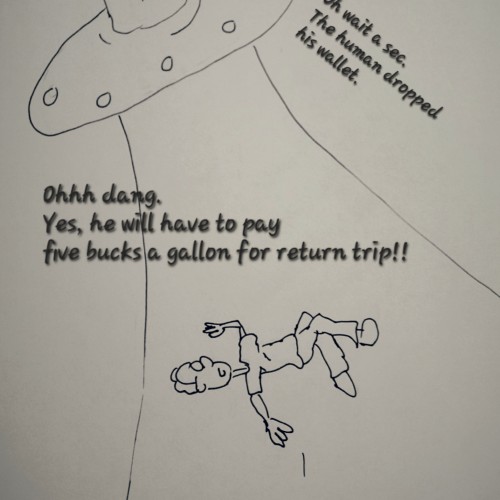 Oh wait a sec.
The human dropped
his wallet.
Ohhh dang.
Yes, he will have to pay
five bucks a gallon for return trip!!